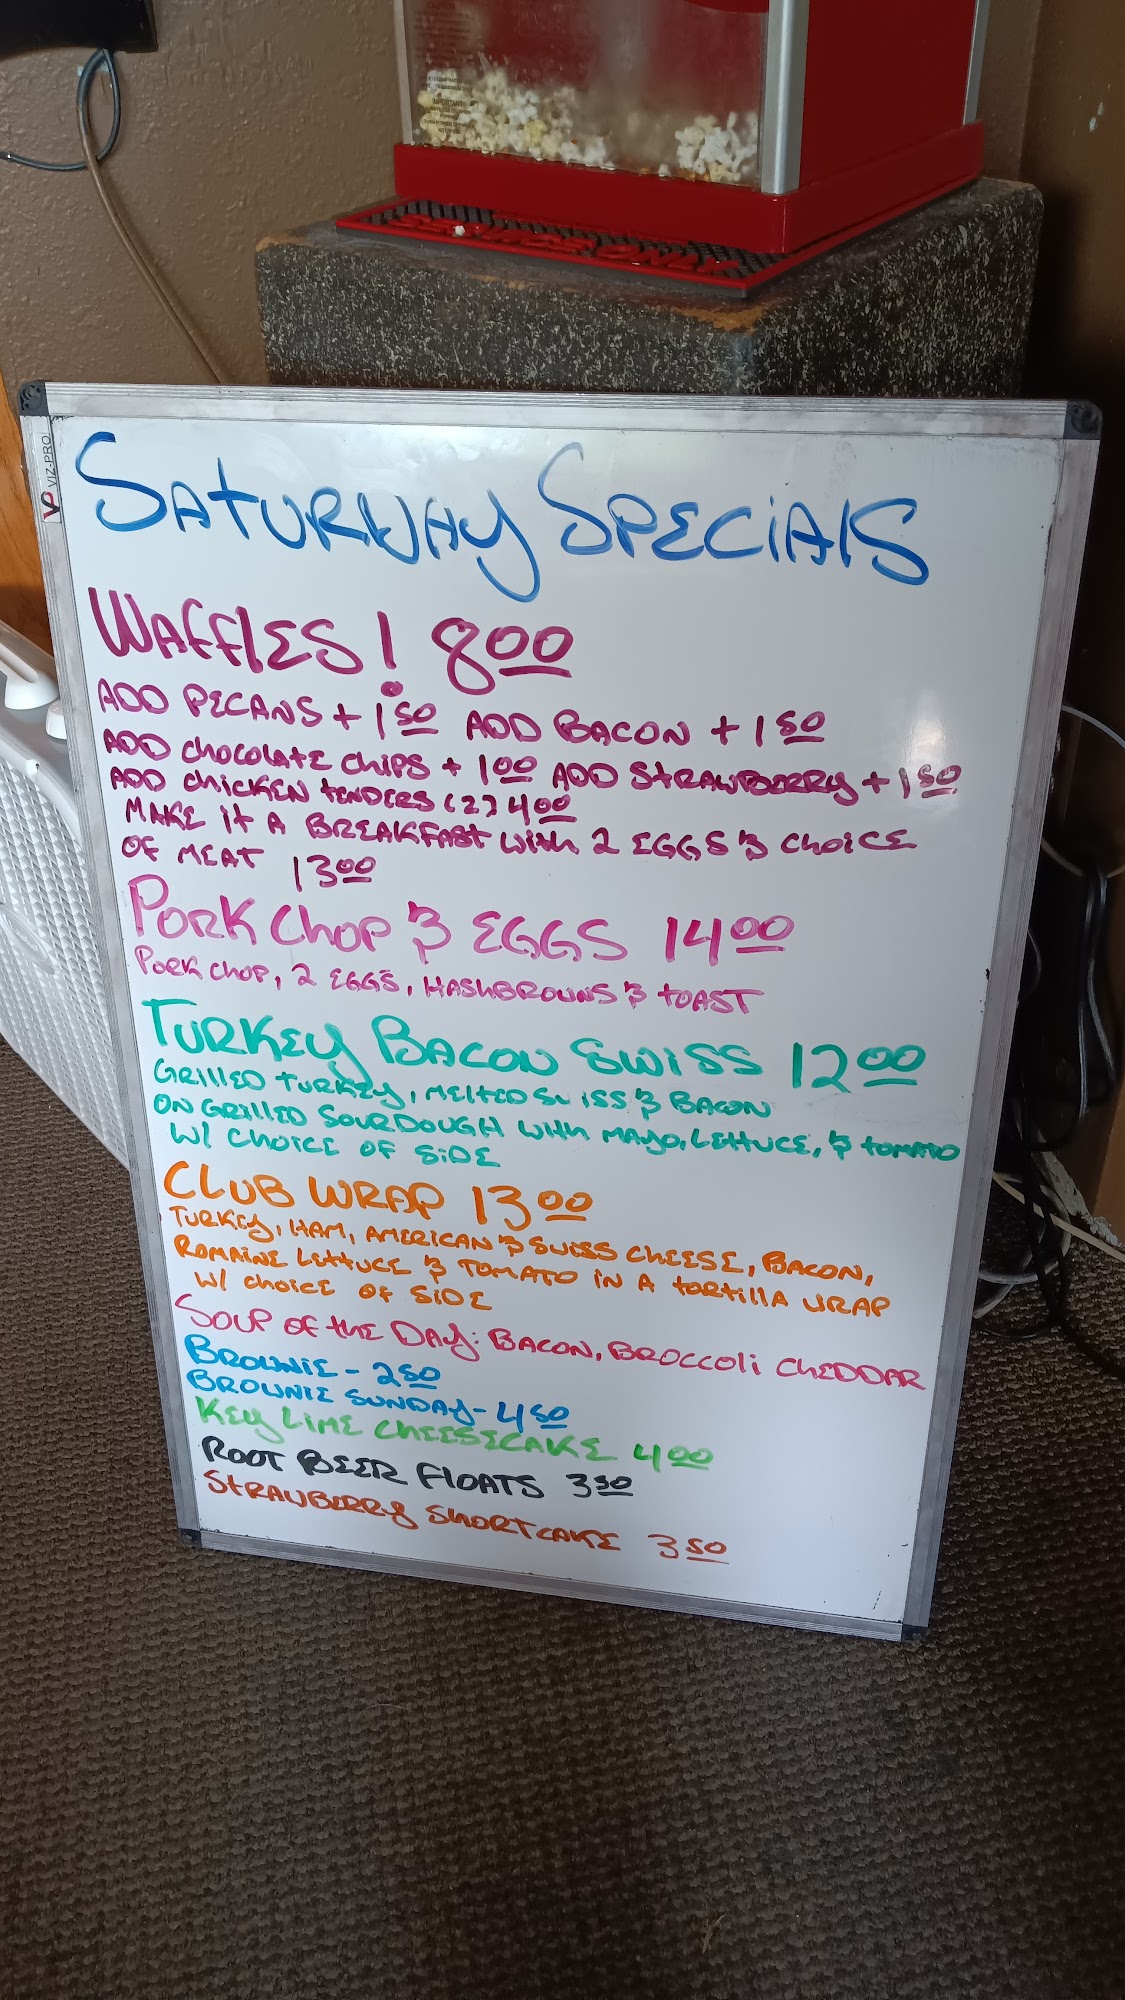 SERVICE ONLY
VP VIZ-PRO
SATURDAY SPECIALS
WAFFLES! 8.00
ADD PECANS + 1.50 ADD BACON + 1.50
ADD CHOCOLATE CHIPS + 1.00 ADD STRAWBERRY + 1.50
ADD CHICKEN TENDERS (2) 4.00
MAKE IT A BREAKFAST WITH 2 EGGS & CHOICE
OF MEAT 13.00
PORK CHOP & EGGS 14.00
PORK CHOP, 2 EGGS, HASHBROWNS & TOAST
TURKEY BACON SWISS 12.00
GRILLED TURKEY, MELTED SWISS & BACON
ON GRILLED SOURDOUGH WITH MAYO, LETTUCE, & TOMATO
W/ CHOICE OF SIDE
CLUB WRAP 13.00
TURKEY, HAM, AMERICAN & SWISS CHEESE, BACON,
ROMAINE LETTUCE & TOMATO IN A TORTILLA WRAP
W/ CHOICE OF SIDE
SOUP OF THE DAY: BACON, BROCCOLI CHEDDAR
BROWNIE - 2.50
BROWNIE SUNDAY - 4.50
KEY LIME CHEESECAKE 4.00
ROOT BEER FLOATS 3.50
STRAWBERRY SHORTCAKE 3.50